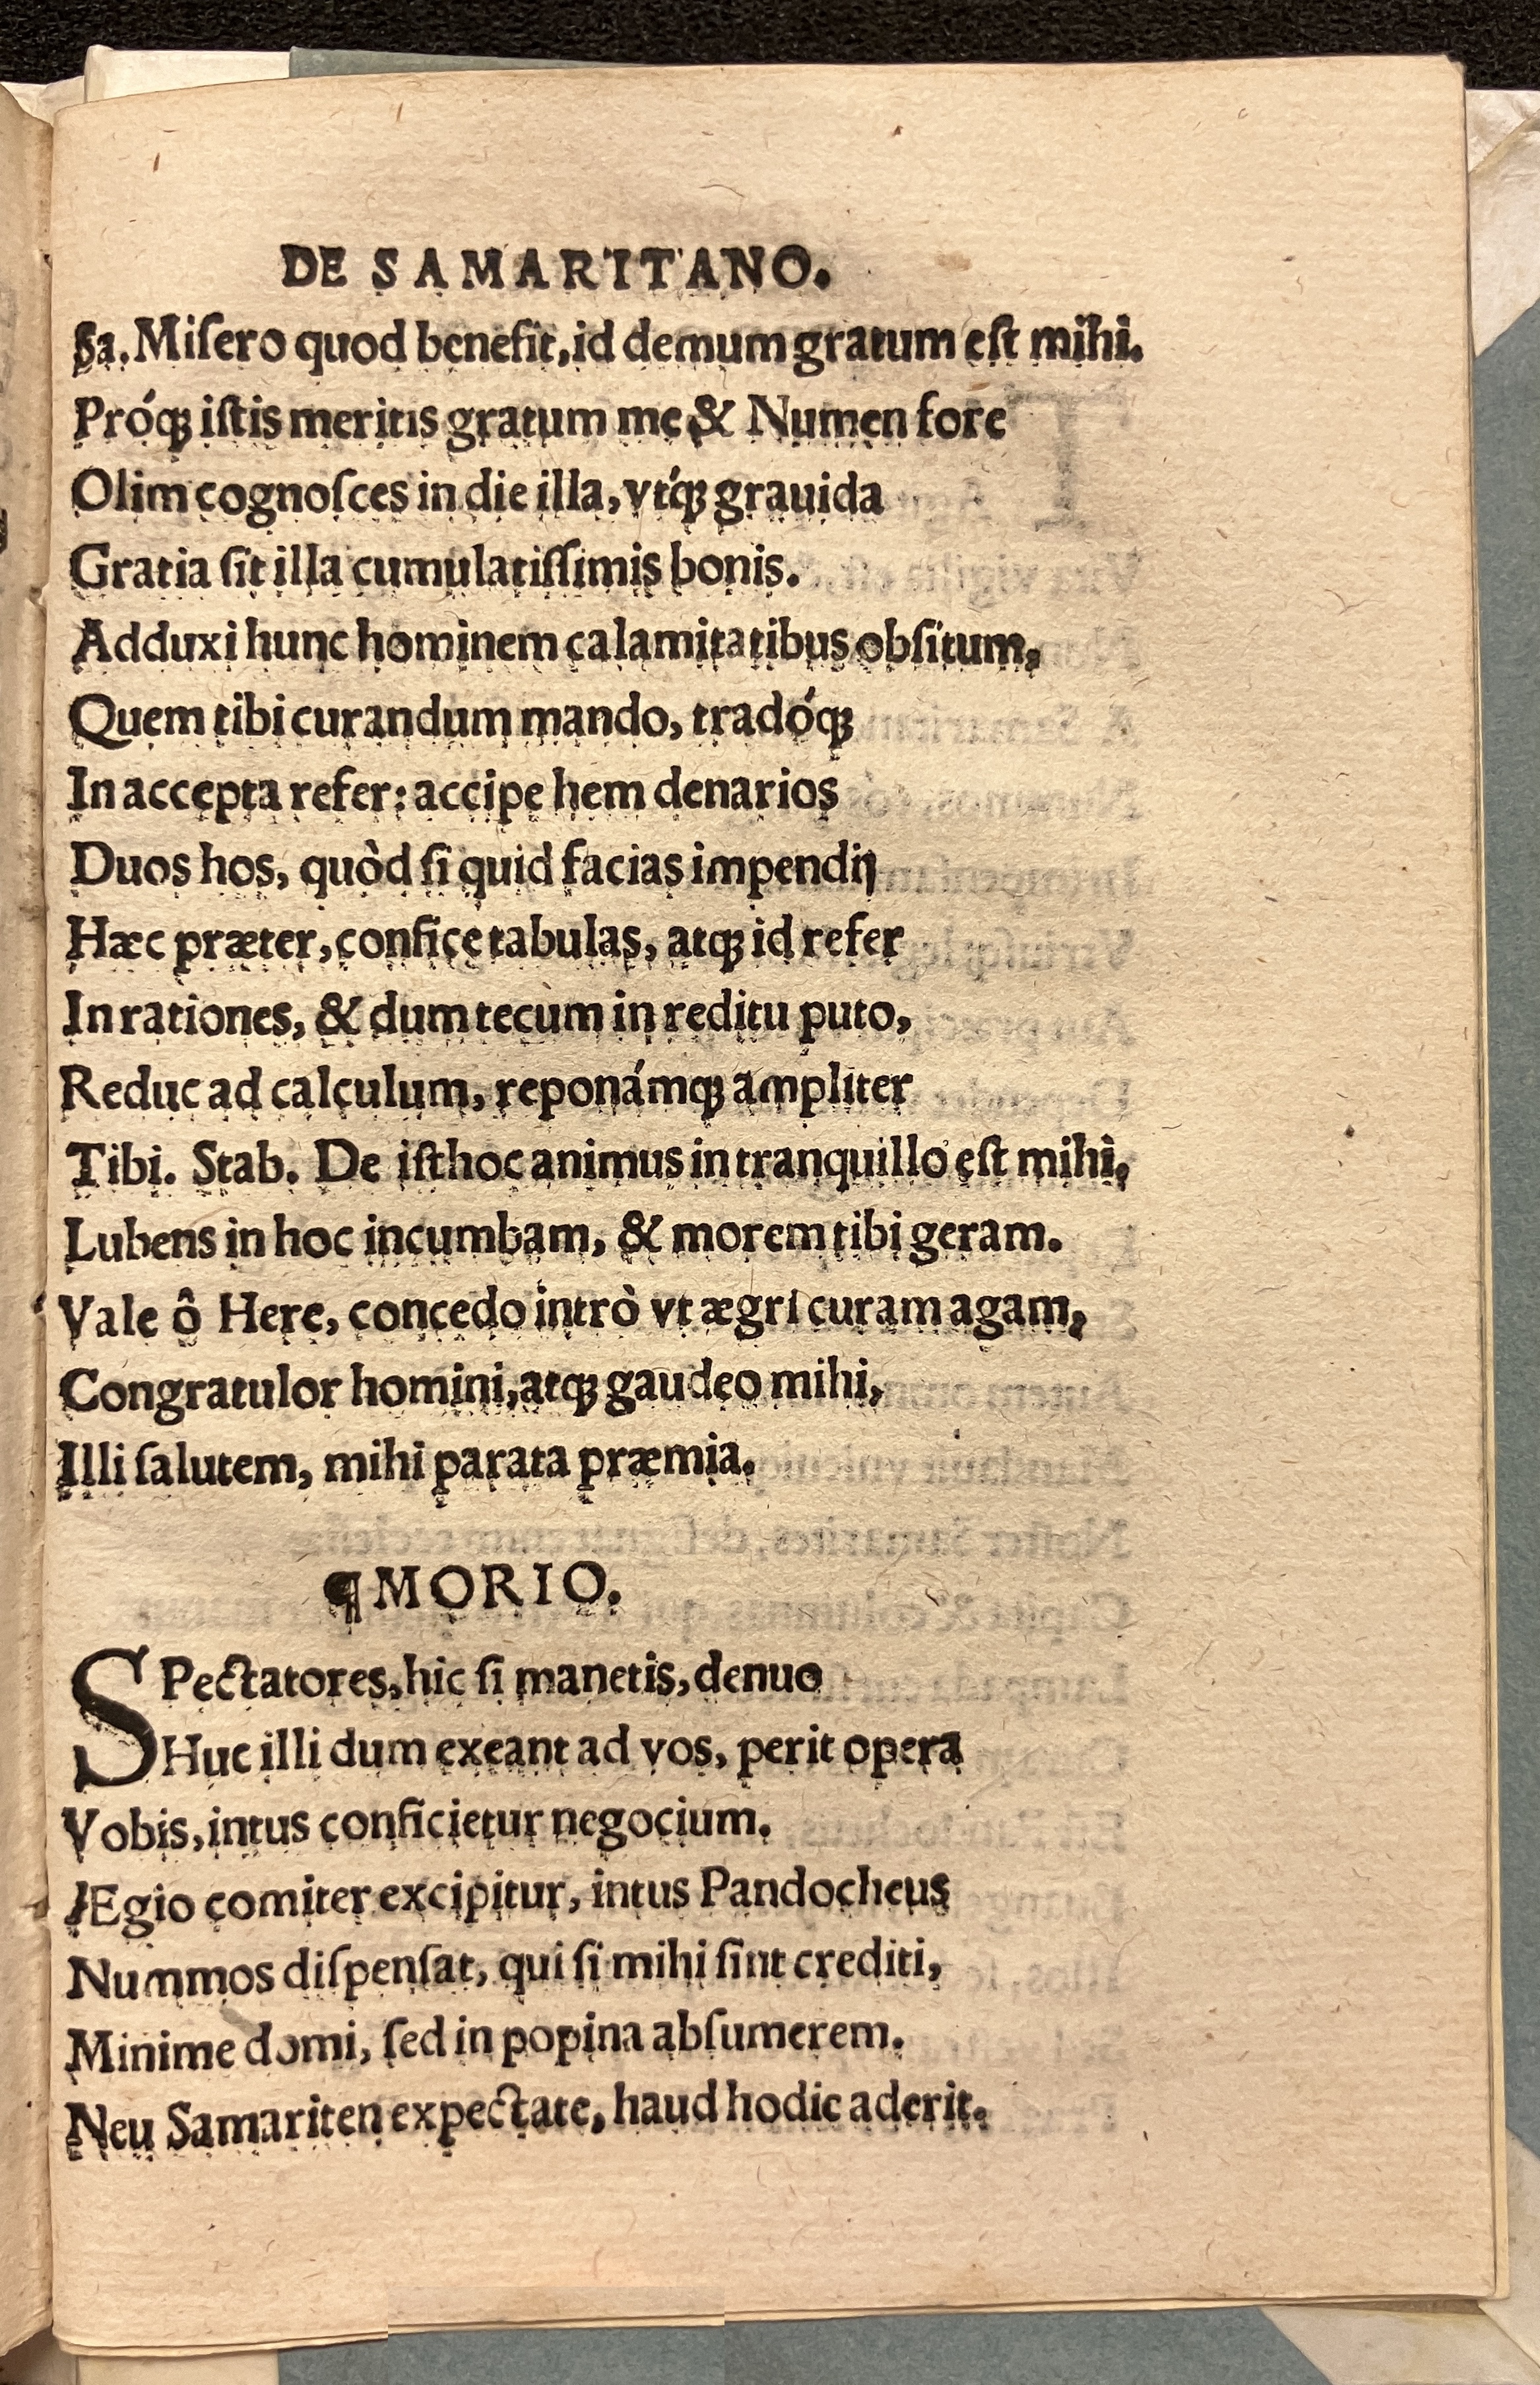 DE SAMARITANO.
Sa. Miſero quod benefit, id demum gratum eſt mihi.
Próꝗ iſtis meritis gratum me & Numen fore
Olim cognoſces in die illa, vtꝗ́ grauida
Gratia ſit illa cumulatiſſimis bonis.
Adduxi hunc hominem calamitatibus obſitum,
Quem tibi curandum mando, tradóꝗ
In accepta refer: accipe hem denarios
Duos hos, quòd ſi quid facias impendij
Hæc præter, confice tabulas, atꝗ id refer
In rationes, & dum tecum in reditu puto,
Reduc ad calculum, reponámꝗ ampliter
Tibi. Stab. De iſthoc animus in tranquillo eſt mihi,
Lubens in hoc incumbam, & morem tibi geram.
Vale ô Here, concedo intrò vt ægri curam agam,
Congratulor homini, atꝗ gaudeo mihi,
Illi ſalutem, mihi parata præmia.
¶ MORIO.
SPectatores, hic ſi manetis, denuo
Huc illi dum exeant ad vos, perit opera
Vobis, intus conficietur negocium.
Ægio comiter excipitur, intus Pandocheus
Nummos diſpenſat, qui ſi mihi ſint crediti,
Minime domi, ſed in popina abſumerem.
Neu Samariten expectate, haud hodie aderit.